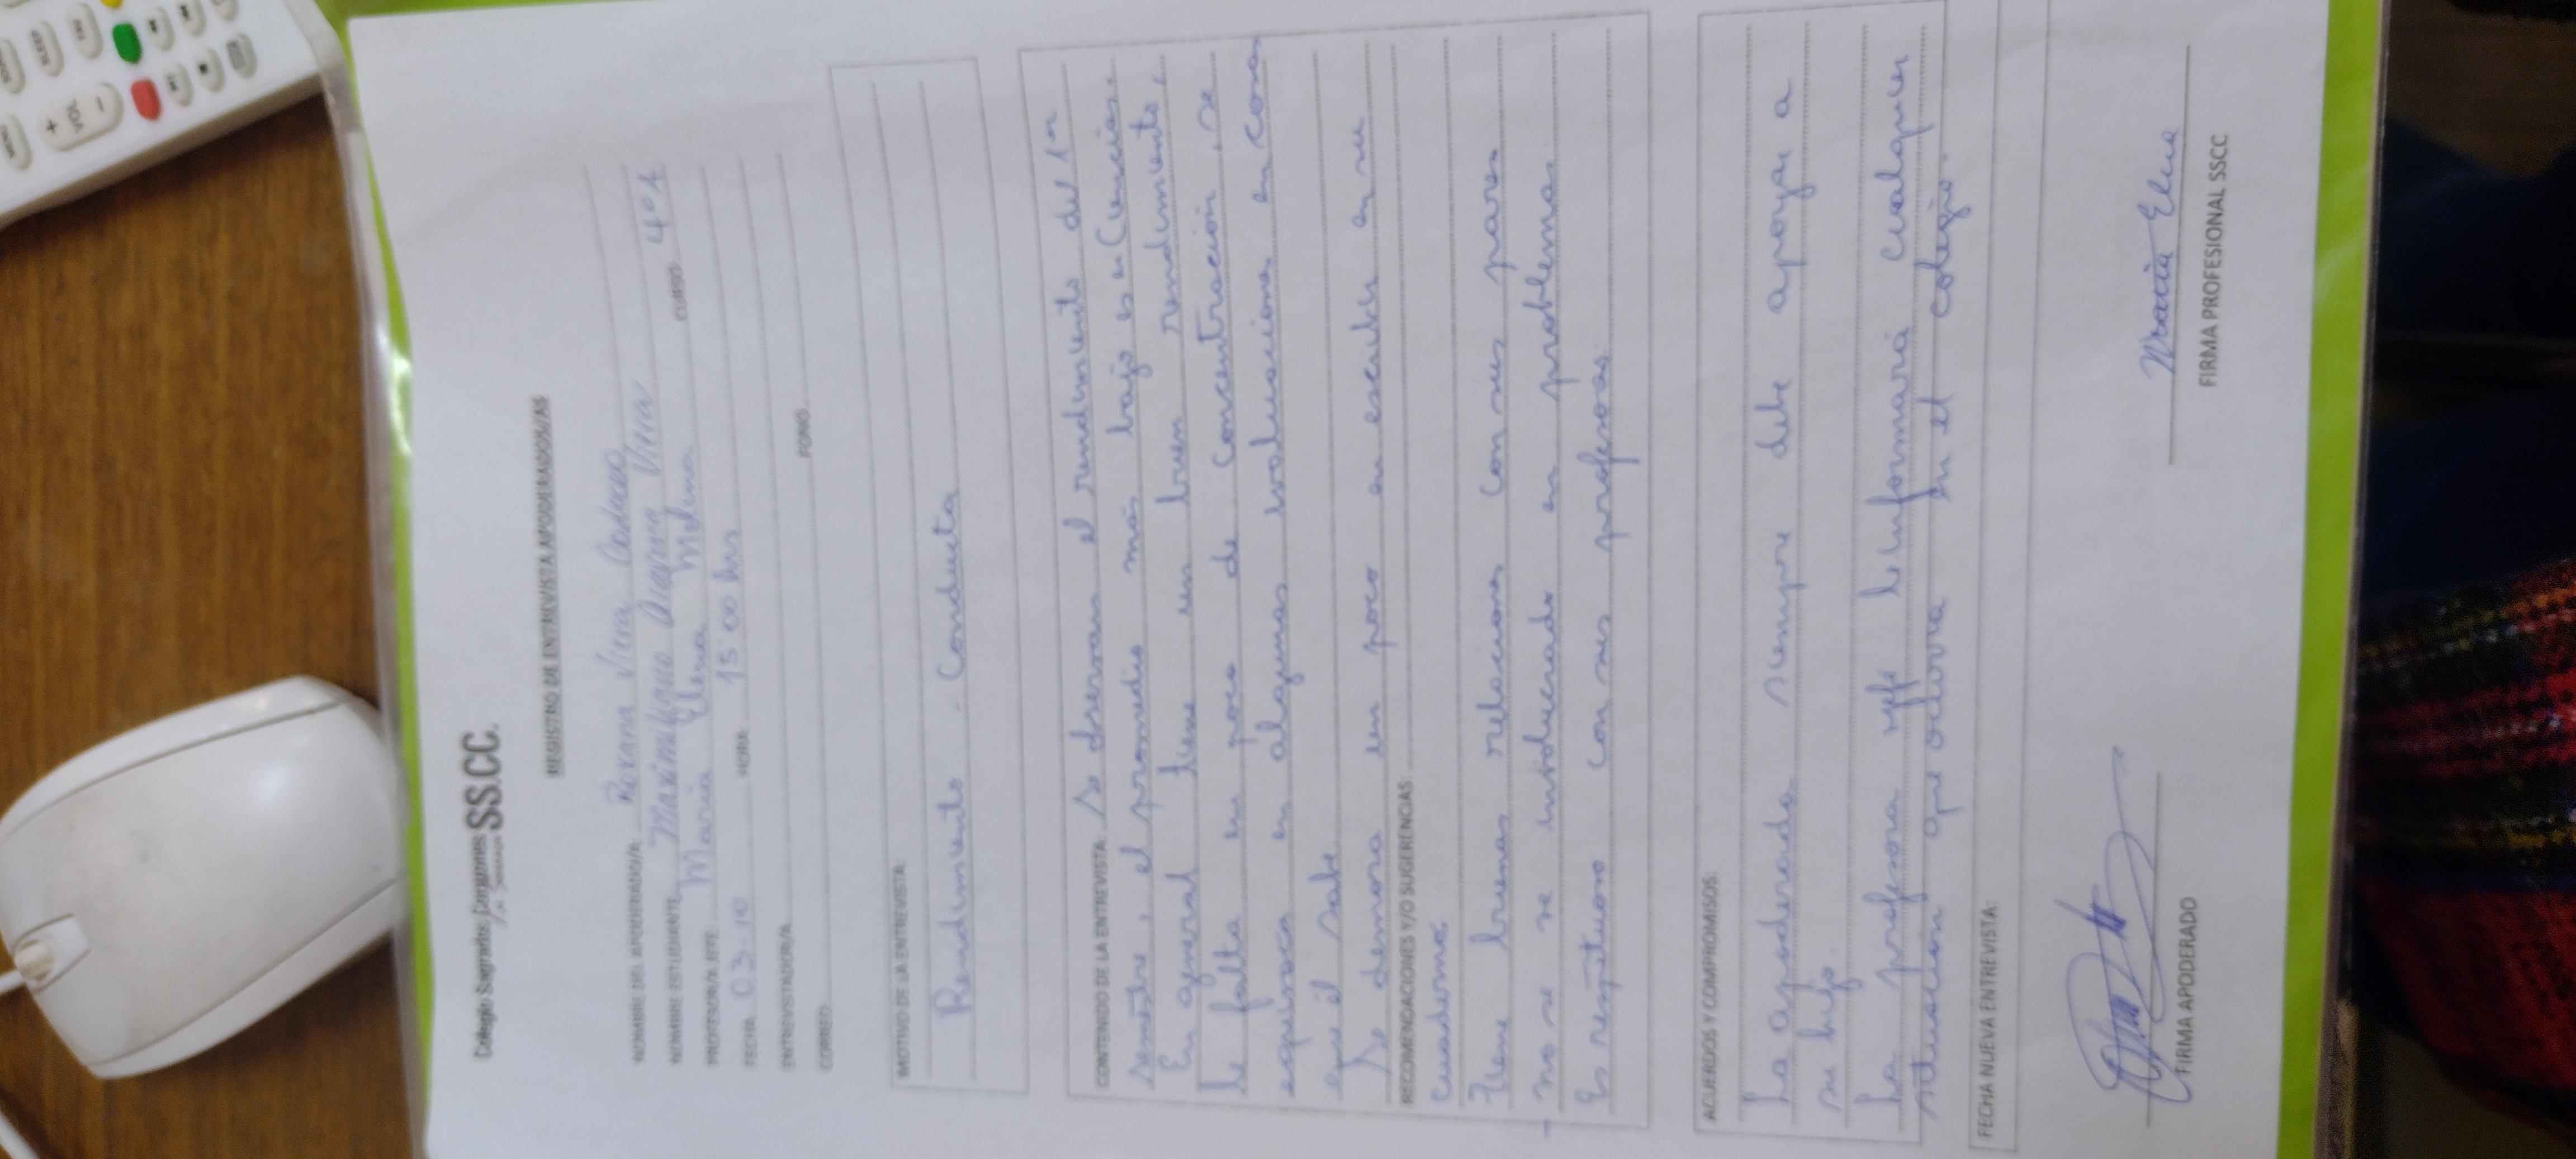 Colegio Sagrados Corazones SS.CC.
REGISTRO DE ENTREVISTA APODERADOS/AS
NOMBRE DEL APODERADO/A: Roxana Vera
NOMBRE ESTUDIANTE Maximiliano Vera CURSO 4°A
PROFESOR/A JEFE María Elena Molina
FECHA 03-10 HORA: 15:00 hrs
ENTREVISTADOR/A
CORREO: FONO
MOTIVO DE LA ENTREVISTA:
Rendimiento - Conducta
CONTENIDO DE LA ENTREVISTA: Se observan el rendimiento del 1er
semestre, el promedio más bajo es en Ciencias.
En general tiene un buen rendimiento,
le falta un poco de concentración, se
equivoca en algunas evaluaciones en cosas
que él sabe.
Se demora un poco en escribir en su
RECOMENDACIONES Y/O SUGERENCIAS:
cuaderno.
Tiene buenas relaciones con sus pares
- no se ve involucrado en problemas.
Es respetuoso con sus profesoras.
ACUERDOS Y COMPROMISOS:
La apoderada siempre debe apoyar a
su hijo.
La profesora jefe le informará cualquier
situación que ocurra en el colegio.
FECHA NUEVA ENTREVISTA:
María Elena
FIRMA APODERADO FIRMA PROFESIONAL SSCC
MENU
VOL
+
-
SLEEP